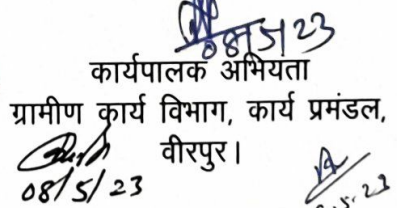 08/5/23
कार्यपालक अभियंता
ग्रामीण कार्य विभाग, कार्य प्रमंडल,
वीरपुर।
08/5/23